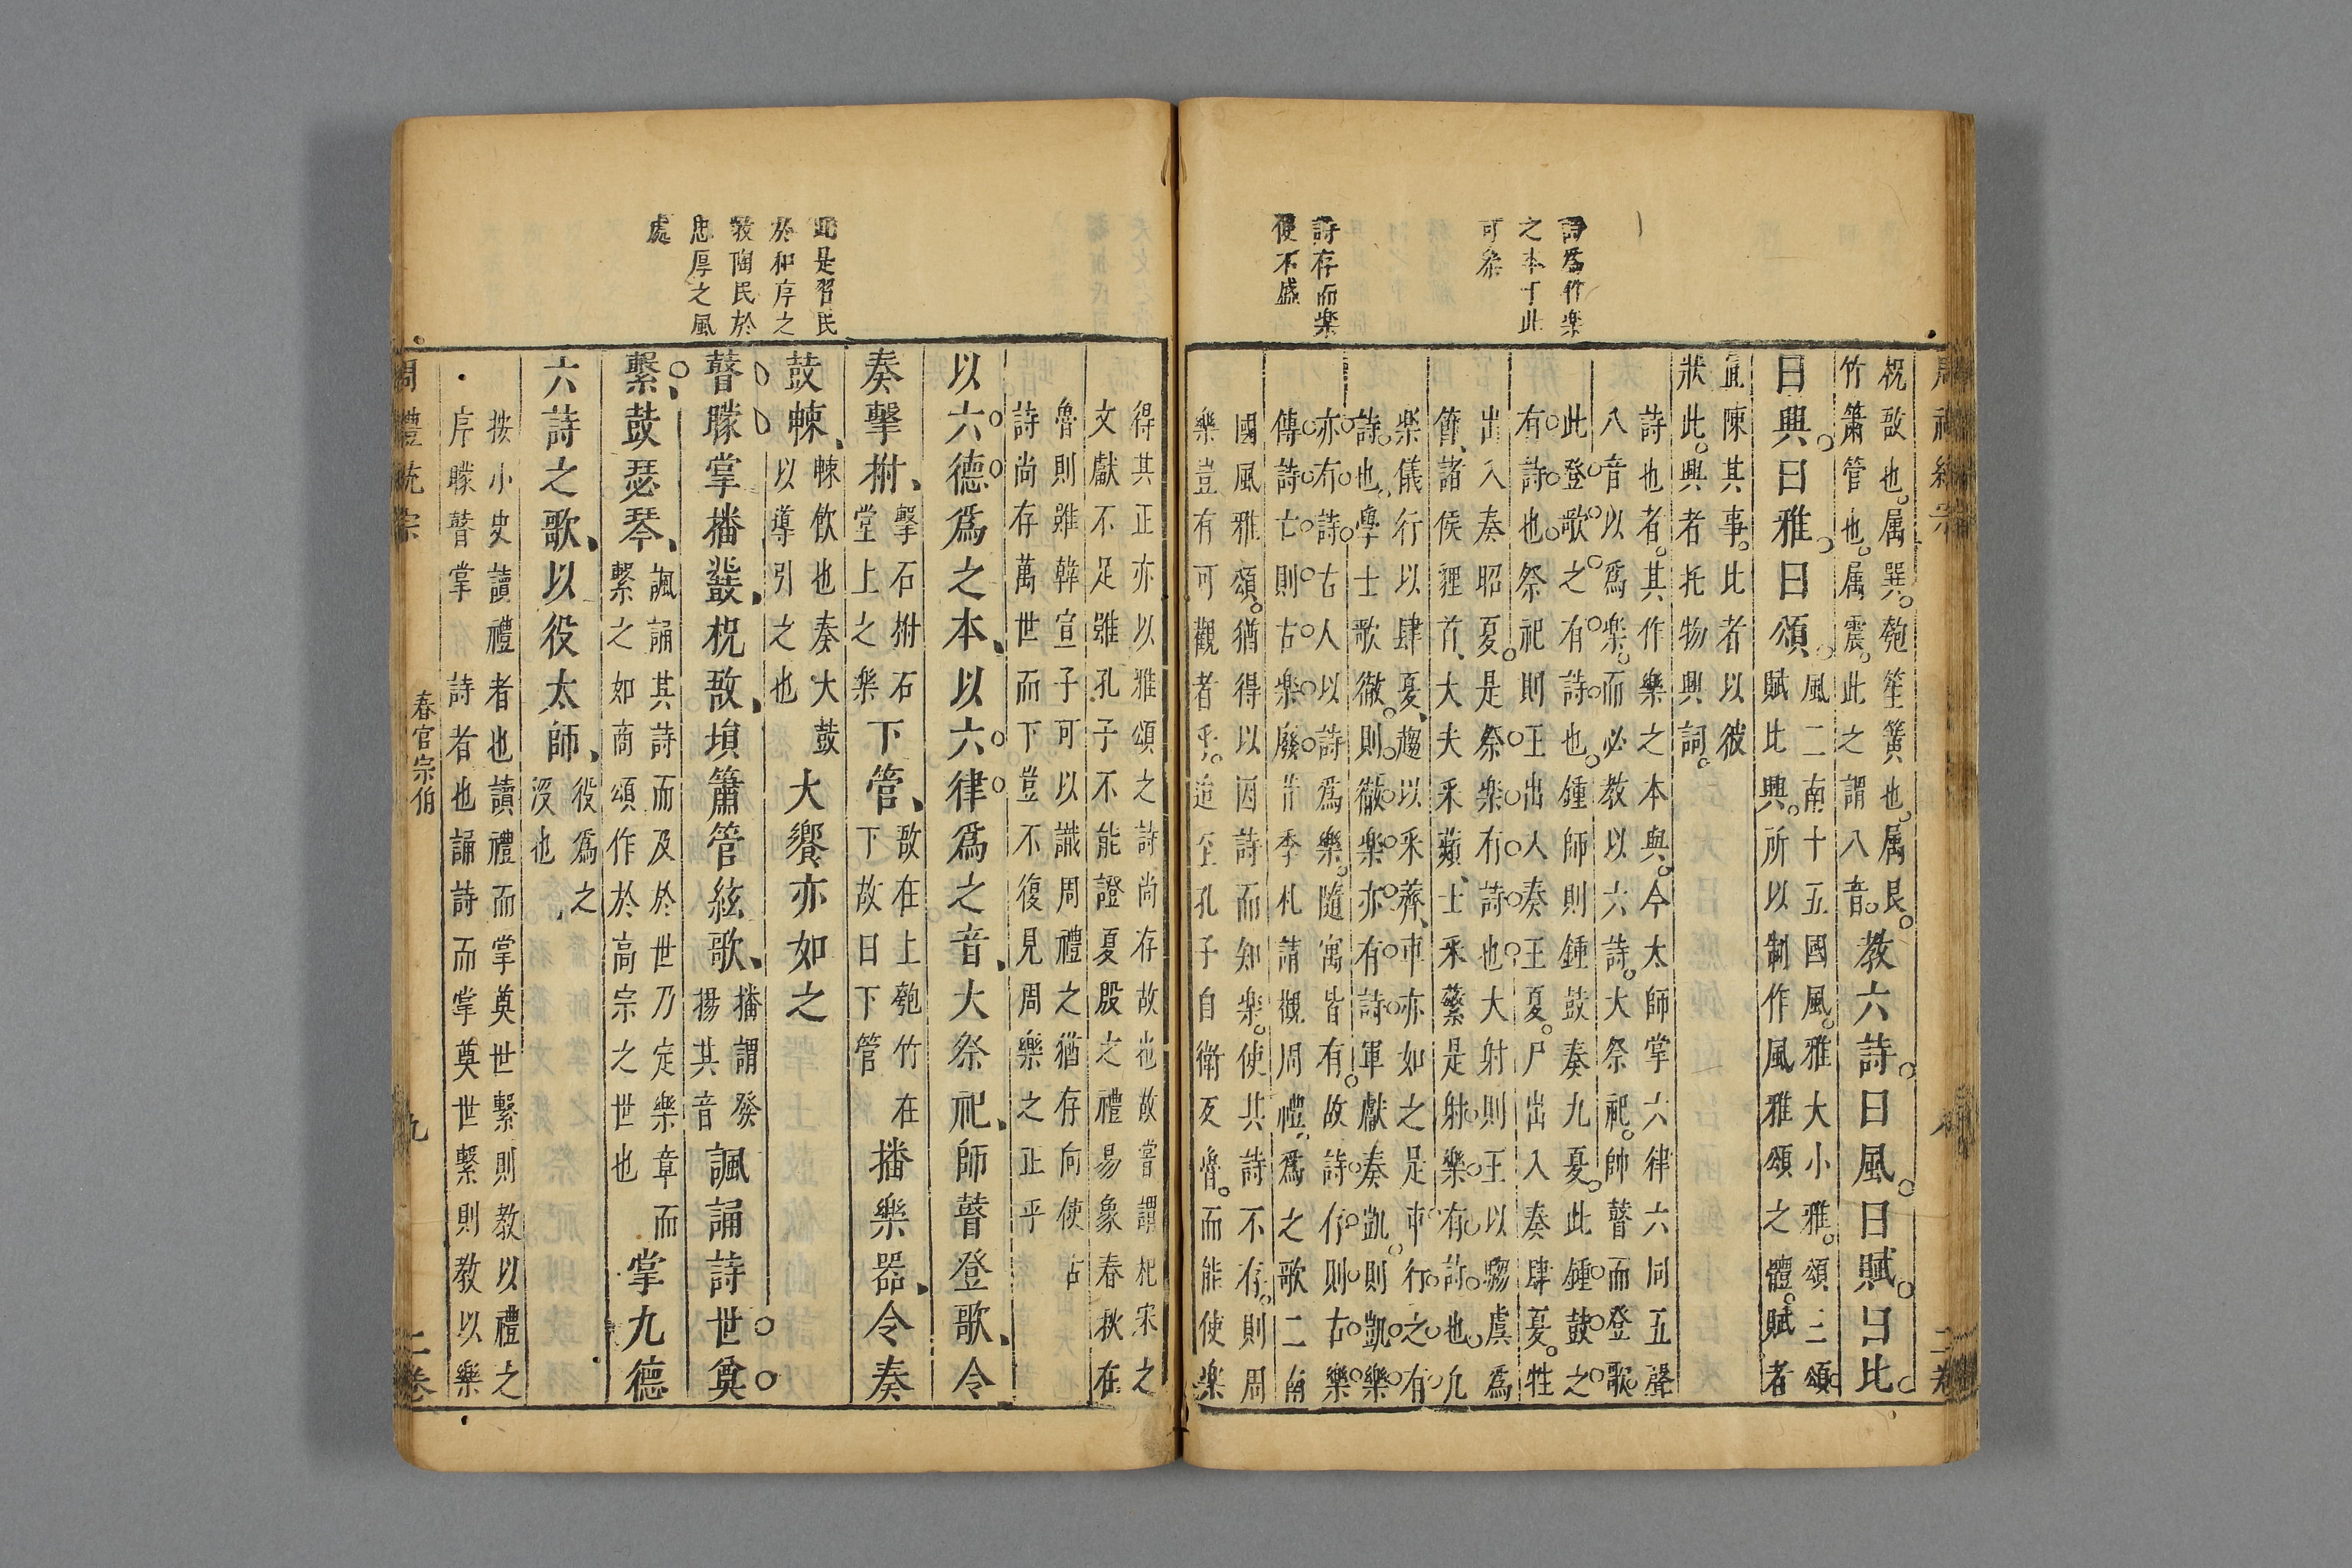 詩為作樂
之本于此
可參
詩存而樂
便不盛
柷敔也属巽匏笙簧也属艮
竹簫管也属震此之謂八音
教六詩曰風曰賦曰比
曰興曰雅曰頌
風二南十五國風雅大小雅頌三頌
賦比興所以制作風雅頌之體賦者
直陳其事比者以彼
狀此興者托物興詞
詩也者其作樂之本與今太師掌六律六同五聲
八音以為樂而必教以六詩大祭祀帥瞽而登歌
此登歌之有詩也鍾師則鍾鼓奏九夏此鍾鼓之
有詩也祭祀則王出入奏王夏尸出入奏肆夏牲
出入奏昭夏是祭樂有詩也大射則王以騶虞為
節諸侯貍首大夫采蘋士采蘩是射樂有詩也九
樂儀行以肆夏趨以采薺車亦如之是車行之有
詩也學士歌徹則徹樂亦有詩軍獻奏凱則凱樂
亦有詩古人以詩為樂隨寓皆有故詩存則古樂
傳詩亡則古樂廢昔季札請觀周禮為之歌二南
國風雅頌猶得以因詩而知樂使其詩不存則周
樂豈有可觀者乎迨至孔子自衛反魯而能使樂
此是習民
於和序之
教陶民於
忠厚之風
處
得其正亦以雅頌之詩尚存故也故嘗謂杞宋之
文獻不足雖孔子不能證夏殷之禮易象春秋在
魯則雖韓宣子可以識周禮之猶存向使古
詩尚存萬世而下豈不復見周樂之正乎
以六德為之本以六律為之音大祭祀師瞽登歌令
奏擊拊
擊石拊石
堂上之樂
下管
敔在上匏竹在
下故曰下管
播樂器令奏
鼓朄
朄飲也奏大鼓
以導引之也
大饗亦如之
瞽矇掌播鼗柷敔塤簫管絃歌
播謂發
揚其音
諷誦詩世奠
繫鼓瑟琴
諷誦其詩而及於世乃定樂章而
繫之如商頌作於高宗之世也
掌九德
六詩之歌以役太師
役為之
没也
按小史讀禮者也讀禮而掌奠世繫則教以禮之
序矇瞽掌詩者也誦詩而掌奠世繫則教以樂
周禮統宗
春官宗伯
九
二卷